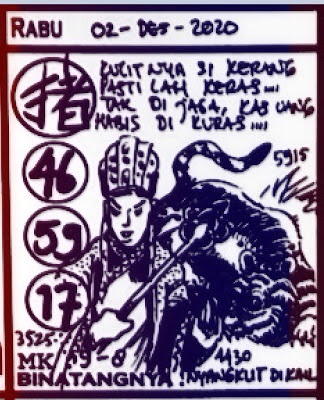 RABU 02-DES-2020
KULITNYA SI KERANG
PASTI LAH KERAS....
TAK DI JAGA, KAS UANG
HABIS DI KURAS....
猪
46
59
17
5915
3525
MK 19-8
4430
BINATANGNYA: NYANGKUT DI KAIL